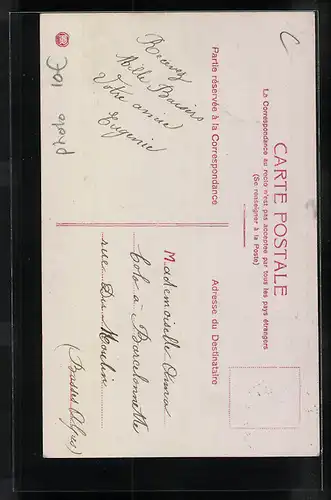 CARTE POSTALE
La Correspondance au recto n'est pas acceptée par tous les pays étrangers
(Se renseigner à la Poste)
Partie réservée à la Correspondance
Adresse du Destinataire
C
Recevez
Mille Baisers
Votre amie
Eugénie
Mademoiselle
Colo à Barcelonnette
rue Du Moulin
(Basses Alpes)
photo
10€